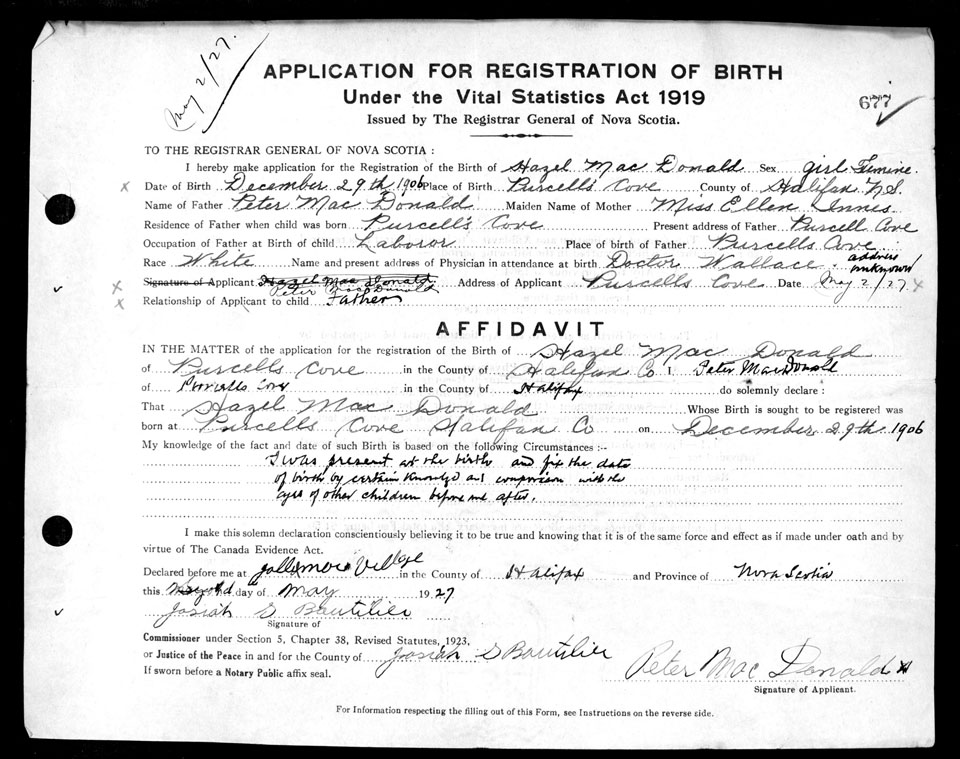 May 2/27.
APPLICATION FOR REGISTRATION OF BIRTH
Under the Vital Statistics Act 1919
677
Issued by The Registrar General of Nova Scotia.
TO THE REGISTRAR GENERAL OF NOVA SCOTIA :
I hereby make application for the Registration of the Birth of Hazel Mac Donald Sex girl Femine.
x Date of Birth December 29th 1906 Place of Birth Purcell's Cove County of Halifax N.S.
Name of Father Peter Mac Donald Maiden Name of Mother Miss Ellen Innes
Residence of Father when child was born Purcell's Cove Present address of Father Purcell Cove
Occupation of Father at Birth of child Laboror Place of birth of Father Purcells Cove
Race White Name and present address of Physician in attendance at birth Doctor Wallace. address unknown
x Signature of Applicant Hazel Mac Donald Peter MacDonald Address of Applicant Purcells Cove Date May 2/27 x
x Relationship of Applicant to child Father
AFFIDAVIT
IN THE MATTER of the application for the registration of the Birth of Hazel Mac Donald
of Purcells Cove in the County of Halifax Co I Peter MacDonald
of Purcells Cove in the County of Halifax do solemnly declare :
That Hazel Mac Donald Whose Birth is sought to be registered was
born at Purcells Cove Halifax Co on December 29th 1906
My knowledge of the fact and date of such Birth is based on the following Circumstances :—
I was present at the birth and fix the date
of birth by certain knowledge and comparison with the
ages of other children before and after.
I make this solemn declaration conscientiously believing it to be true and knowing that it is of the same force and effect as if made under oath and by
virtue of The Canada Evidence Act.
Declared before me at Village in the County of Halifax and Province of Nova Scotia
this day of May 1927
Josiah S Boutilier
Signature of
Commissioner under Section 5, Chapter 38, Revised Statutes, 1923,
or Justice of the Peace in and for the County of Josiah S Boutilier
Peter Mac Donald x
If sworn before a Notary Public affix seal.
Signature of Applicant.
For Information respecting the filling out of this Form, see Instructions on the reverse side.